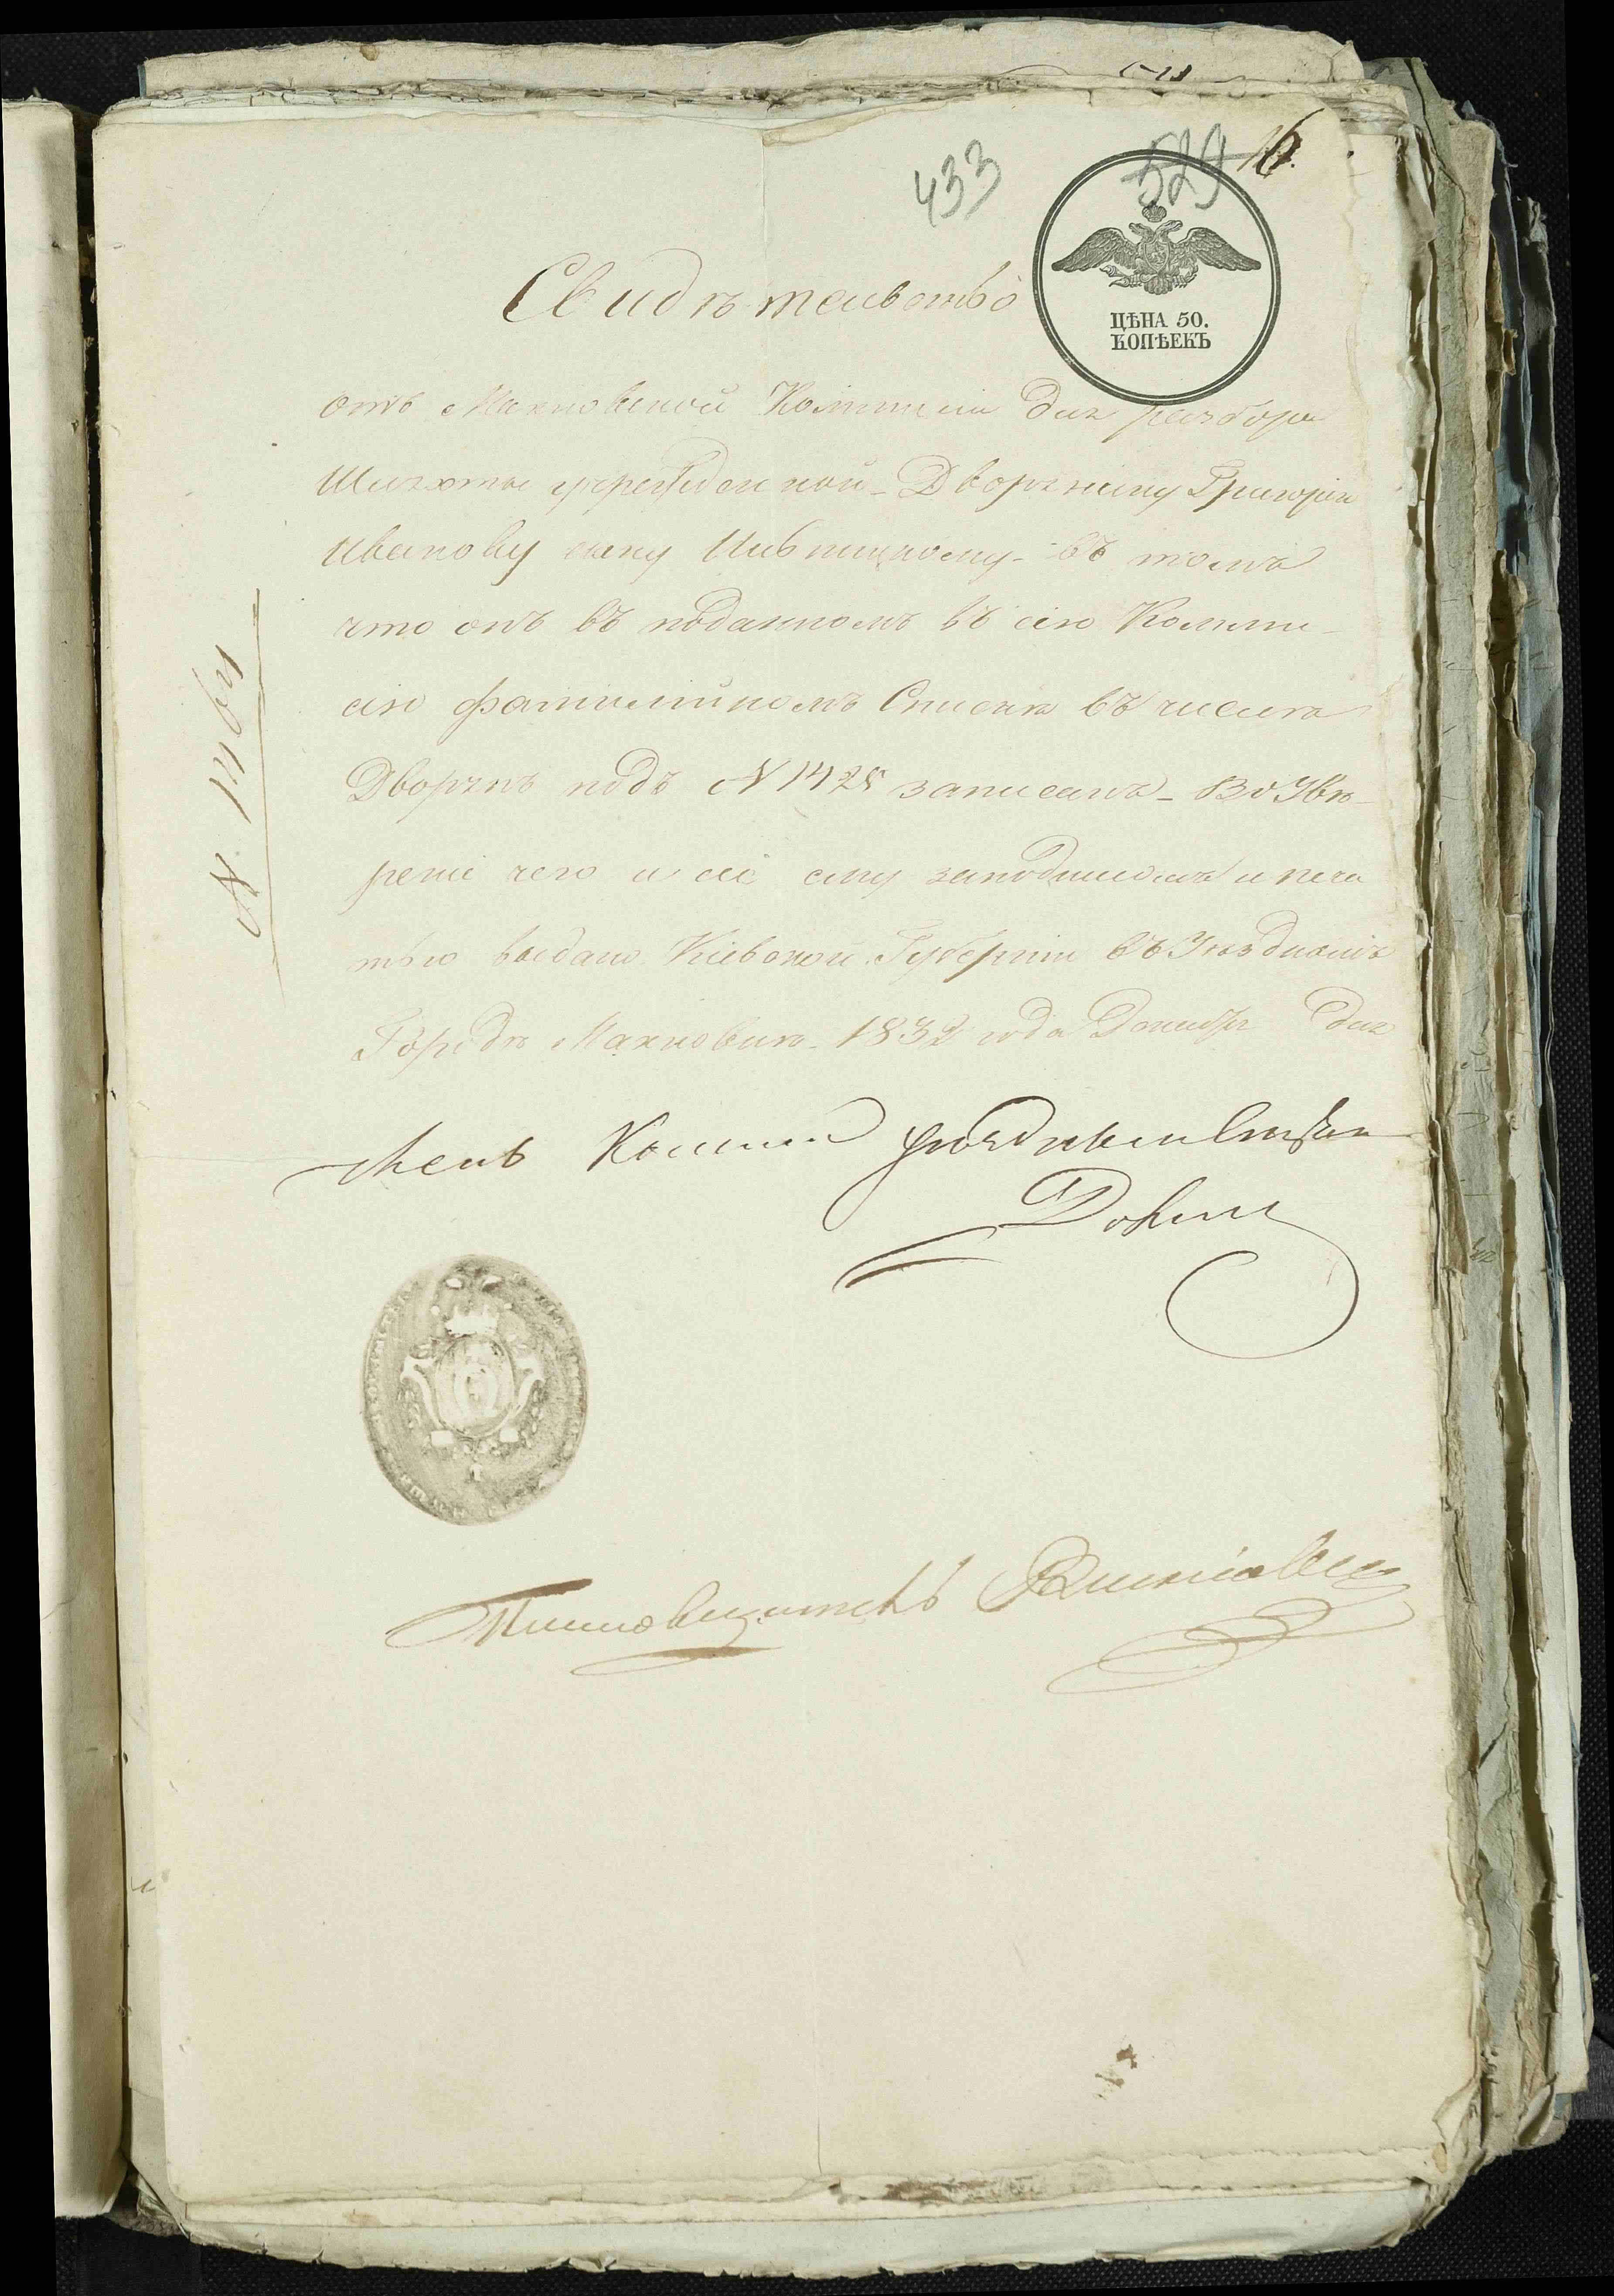 433
529 16.
ЦѢНА 50.
КОПѢЕКЪ
Свидѣтельство
отъ Махновской Коммисіи для разбора
Шляхты учрежденной - Дворянину Григорію
Иванову сыну - въ томъ
что онъ въ поданномъ въ сію Комми-
сію фамилійномъ Спискѣ въ числѣ
Дворянъ подъ N 1428 записанъ - Во Увѣ-
реніе чего и сіе ему за подписомъ и печа
тью выдано Кіевской Губерніи въ Уѣздномъ
Городѣ Махновкѣ - 1832 года Декабря дня
Членъ Коммис
Письмоводитель
N